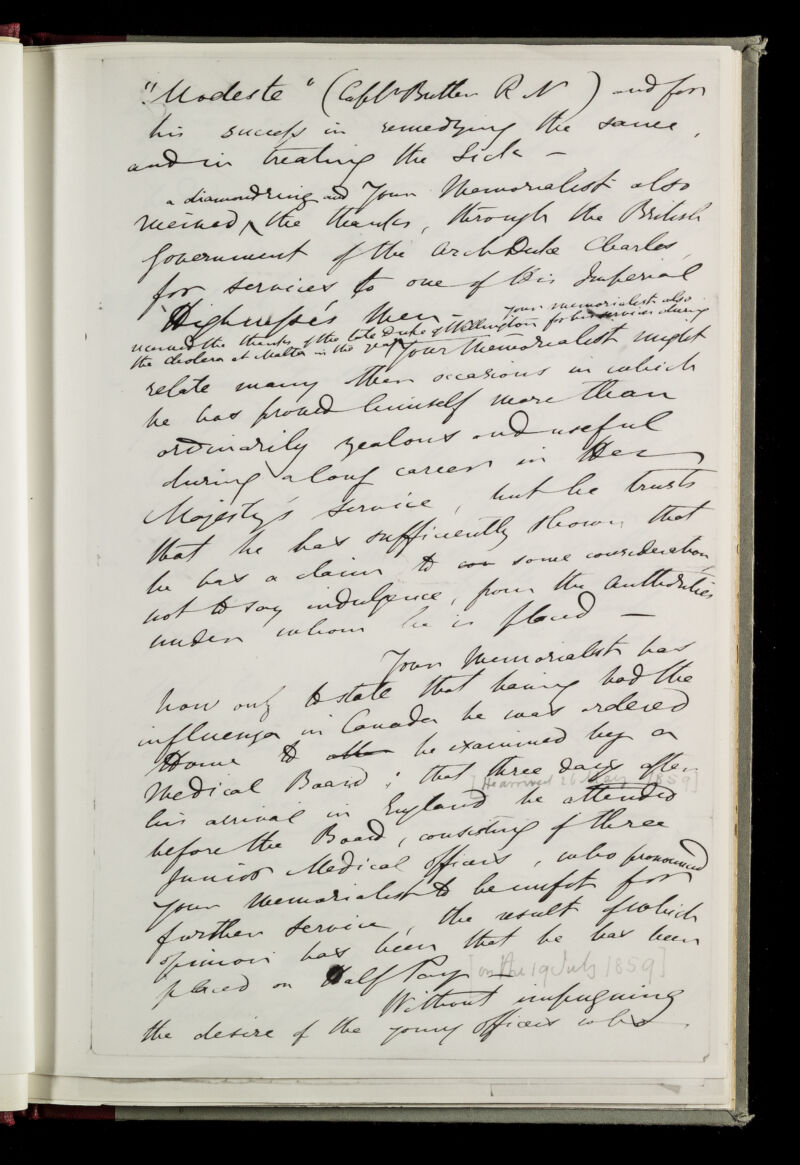 "Modeste" (Captn Butler R N) and for
his success in remedying the same,
and in treating the Sick —
a diamond ring and Your Memorialist also
received ^ the thanks, through the British
Government of the ArchDuke Charles,
for services to one of His Imperial
Highness's Men — Your memorialist also
received the thanks of the late Duke of Wellington for his services during
the cholera at Malta in the year Your Memorialist might
relate many other occasions in which
he has proved himself more than
ordinarily zealous and useful
during a long career in Her
Majesty's Service, but he trusts
that he has sufficiently shown that
he has a claim to con some consideration,
not to say indulgence, from the Authorities
under whom he is placed —
Your Memorialist has
now only to state that having had the
influenza in Canada he was ordered
Home to be examined by a
Medical Board; that three days after
[He arrived 26 May 1859]
his arrival in England he attended
before the Board, consisting of three
Junior Medical officers, who pronounced
your Memorialist to be unfit for
further service, the result of which
opinion has been that he has been
placed on Half Pay — [on the 19 July 1859]
Without impugning
the desire of the young officers who